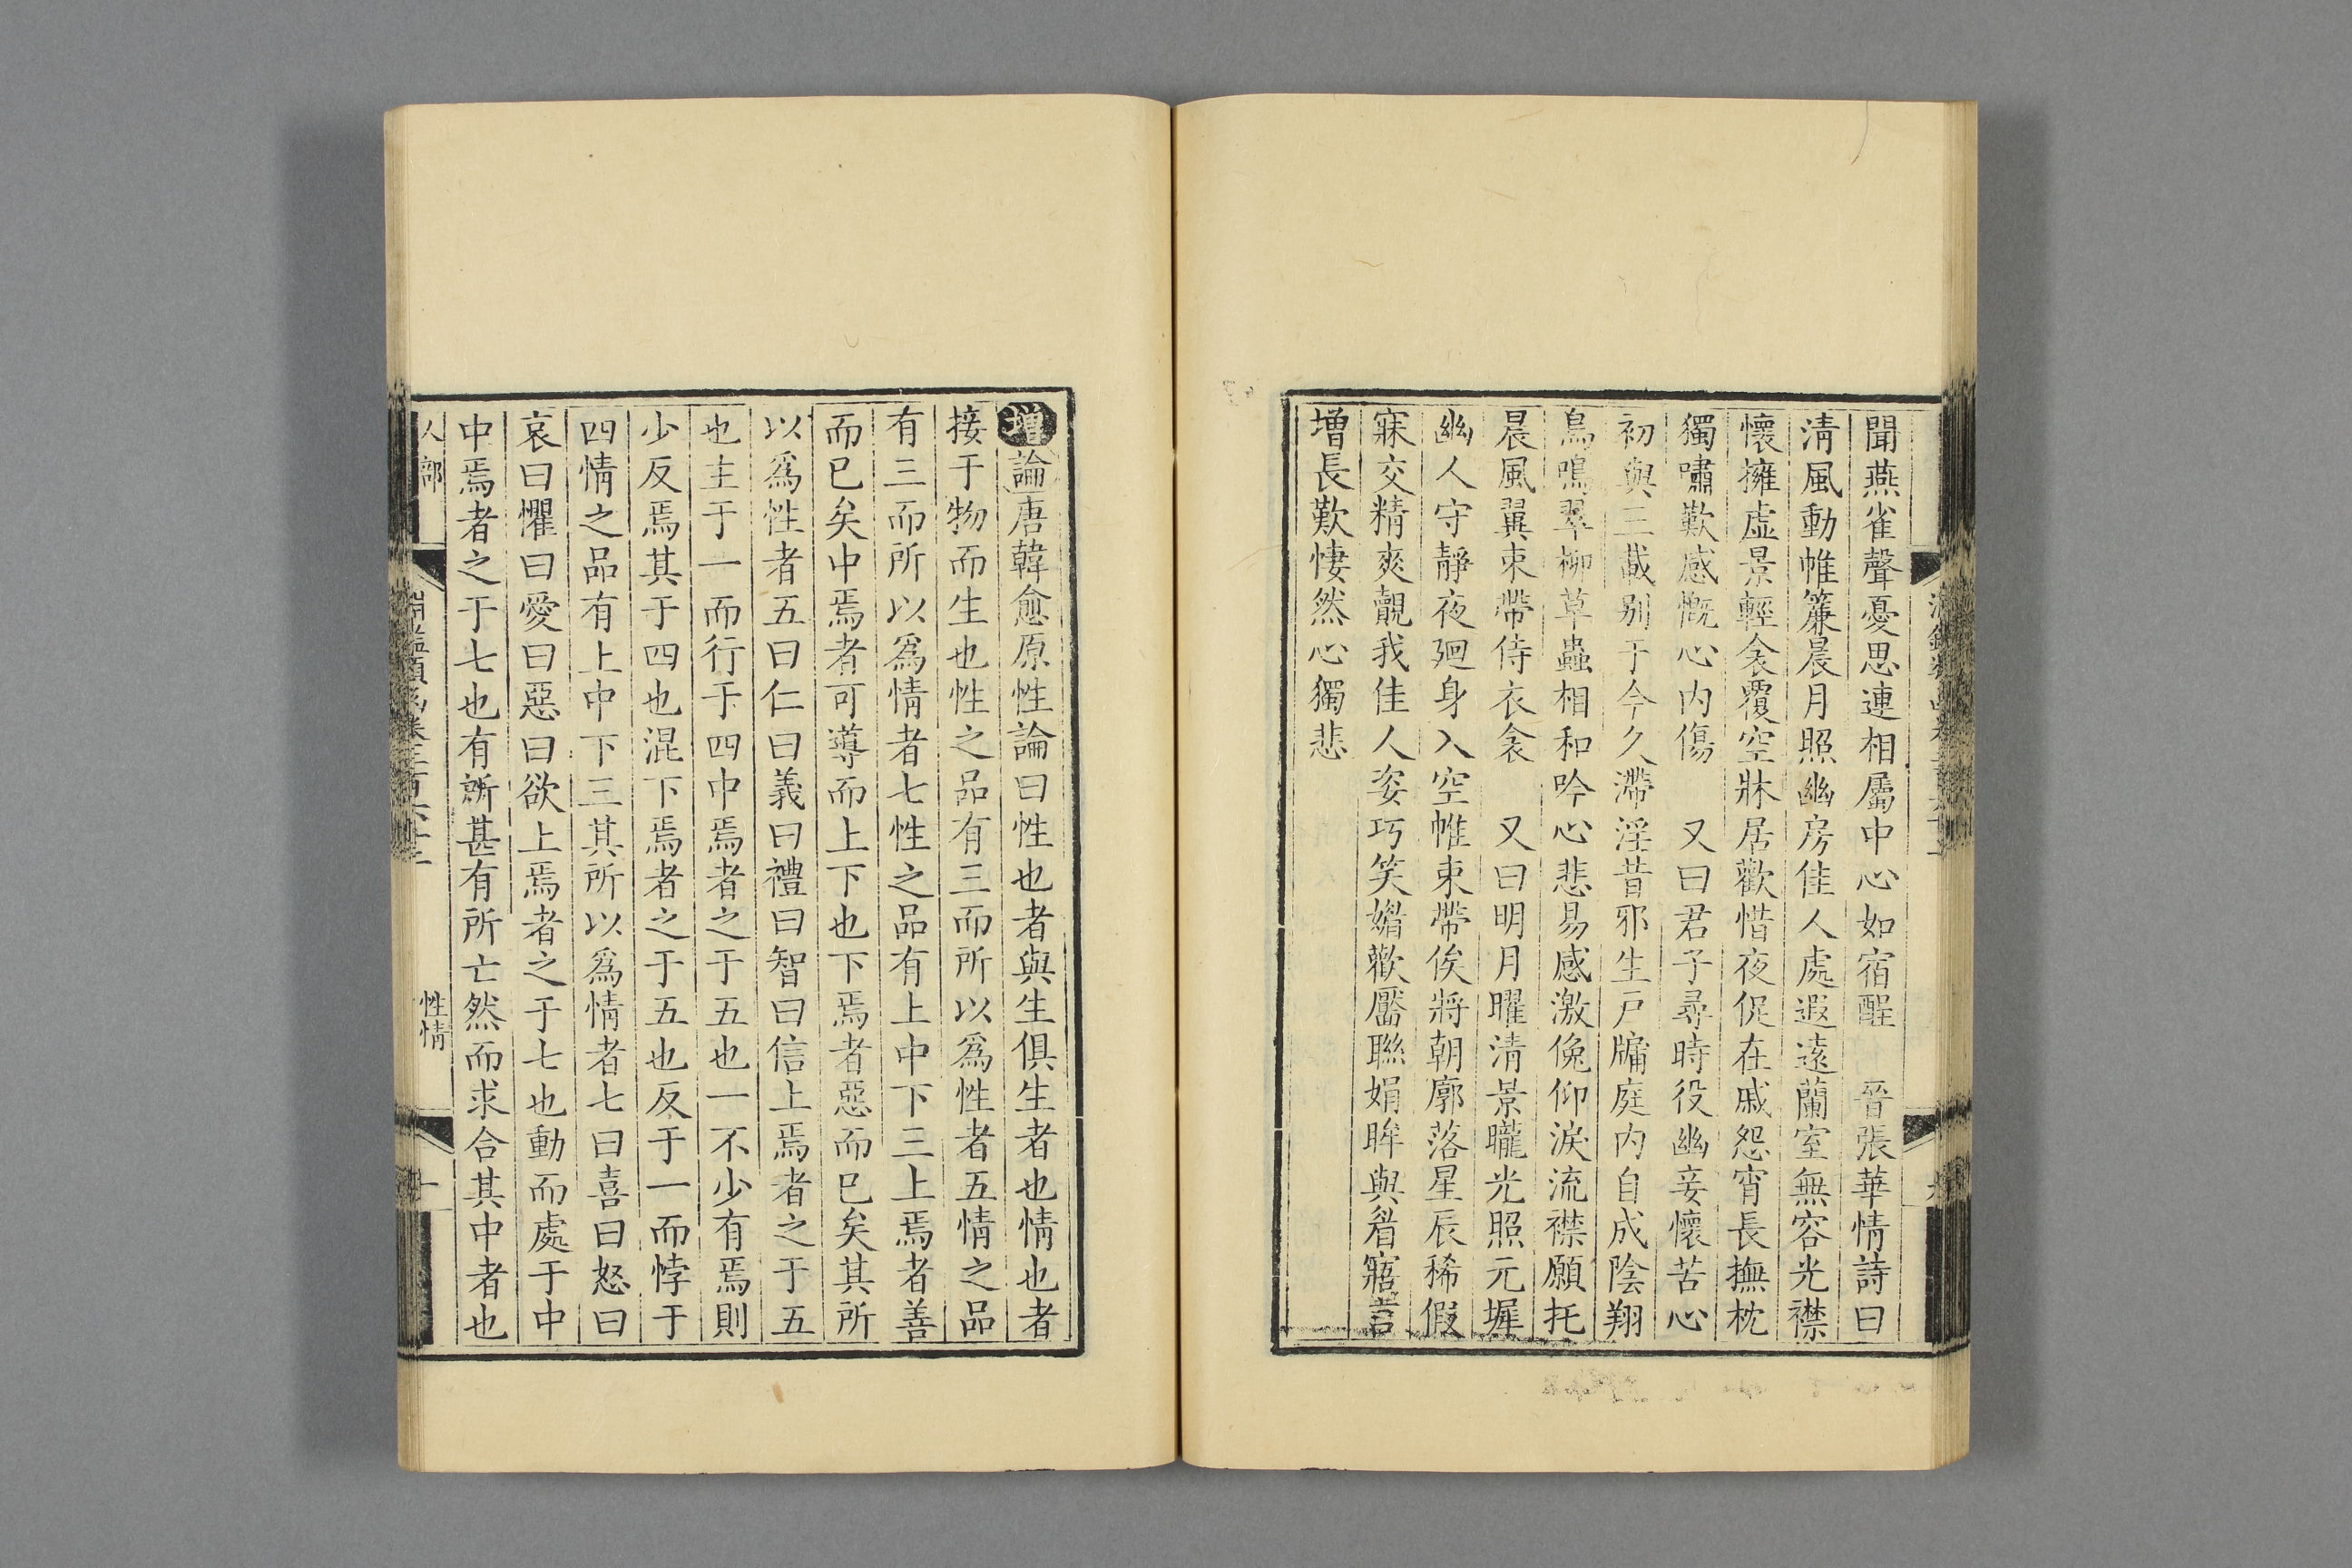 聞燕雀聲憂思連相屬中心如宿酲　晉張華情詩曰
淸風動帷簾晨月照幽房佳人處遐遠蘭室無容光襟
懷擁虛景輕衾覆空牀居歡惜夜促在戚怨宵長撫枕
獨嘯歎感慨心內傷　又曰君子尋時役幽妾懷苦心
初與三載别于今久滯淫昔邪生戸牖庭内自成陰翔
鳥鳴翠柳草蟲相和吟心悲易感激俛仰淚流襟願托
晨風翼束帶侍衣衾　又曰明月曜淸景曨光照元墀
幽人守靜夜廻身入空帷束帶俟將朝廓落星辰稀假
寐交精爽覿我佳人姿巧笑媚歡靨聯娟眸與眉寤言
增長歎悽然心獨悲
增論唐韓愈原性論曰性也者與生俱生者也情也者
接于物而生也性之品有三而所以爲性者五情之品
有三而所以爲情者七性之品有上中下三上焉者善
而已矣中焉者可導而上下也下焉者惡而已矣其所
以爲性者五曰仁曰義曰禮曰智曰信上焉者之于五
也主于一而行于四中焉者之于五也一不少有焉則
少反焉其于四也混下焉者之于五也反于一而悖于
四情之品有上中下三其所以爲情者七曰喜曰怒曰
哀曰懼曰愛曰惡曰欲上焉者之于七也動而處于中
中焉者之于七也有所甚有所亡然而求合其中者也
人部
性情